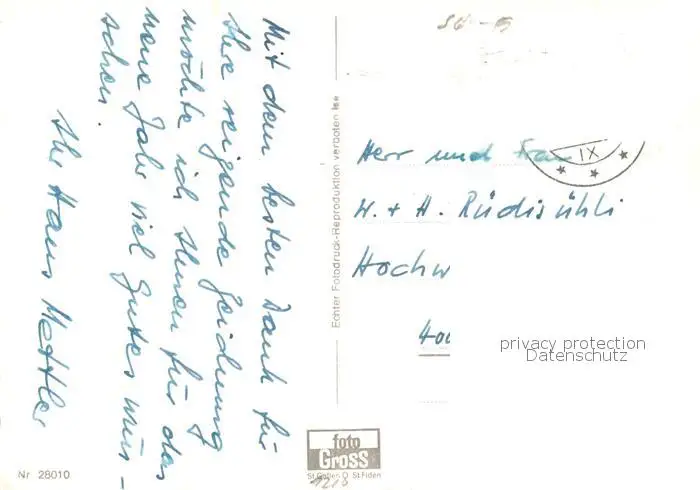 Mit dem besten Dank für
Ihre reizende Zeichnung
möchte ich Ihnen für das
neue Jahr viel Gutes wün-
schen.
Ihr Hans Mettler
Echter Fotodruck-Reproduktion verboten
Herr und Frau
IX
W. + H. Rüdisühli
Hochw
400
privacy protection
Datenschutz
foto
Gross
St.Gallen O St.Fiden
1218
Nr 28010